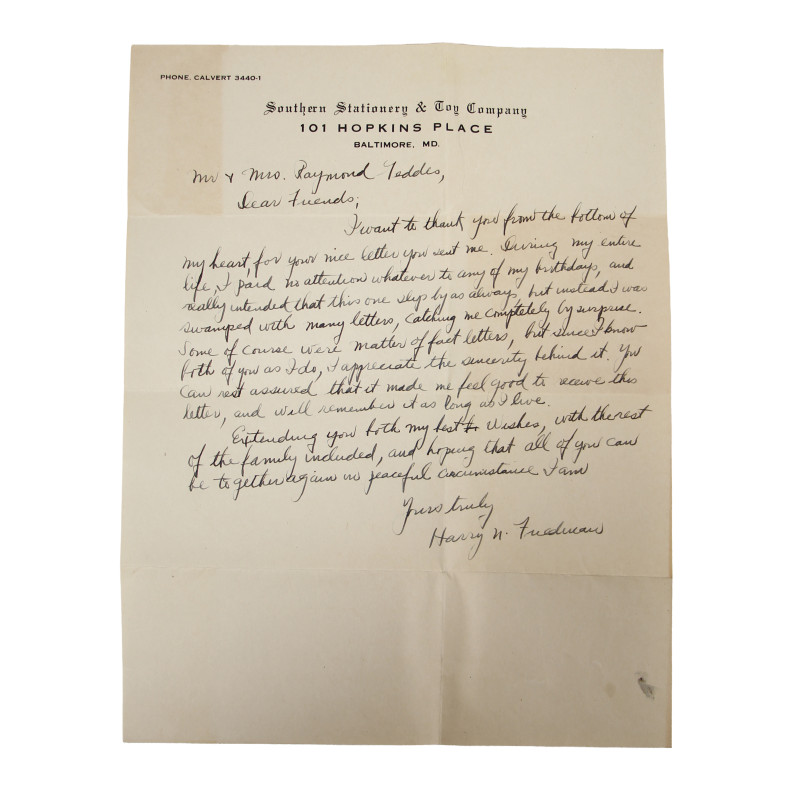 PHONE, CALVERT 3440-1
Southern Stationery & Toy Company
101 HOPKINS PLACE
BALTIMORE, MD.
Mr & Mrs. Raymond Geddes,
Dear Friends;
I want to thank you from the bottom of
my heart, for your nice letter you sent me. During my entire
life, I paid no attention whatever to any of my birthdays, and
really intended that this one slip by as always, but instead I was
swamped with many letters, catching me completely by surprise.
Some of course were matter of fact letters, but since I know
both of you as I do, I appreciate the sincerity behind it. You
can rest assured that it made me feel good to receive this
letter, and will remember it as long as I live.
Extending you both my best wishes, with the rest
of the family included, and hoping that all of you can
be together again in peaceful circumstance I am
Yours truly
Harry N. Friedman